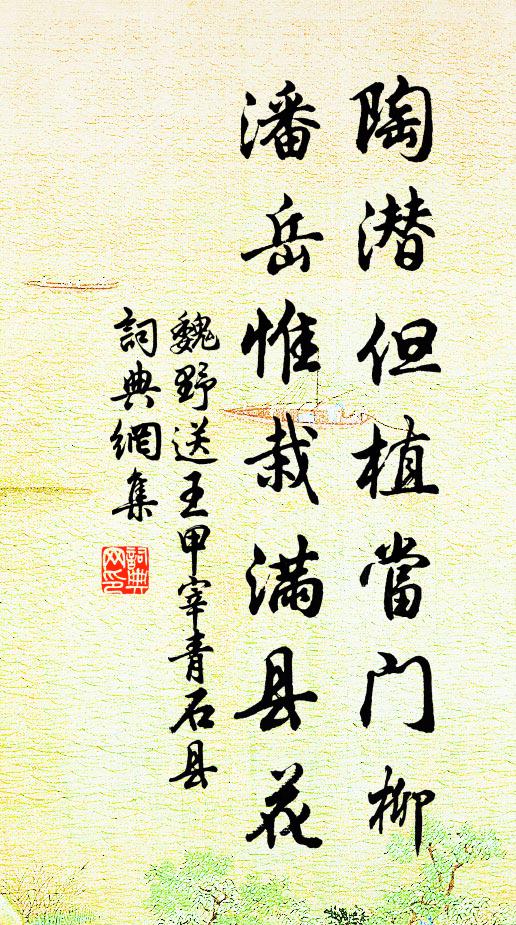 陶潜但植當门柳
潘岳惟栽满县花
魏野送王甲宰青石县
詞典網集
詞典网印